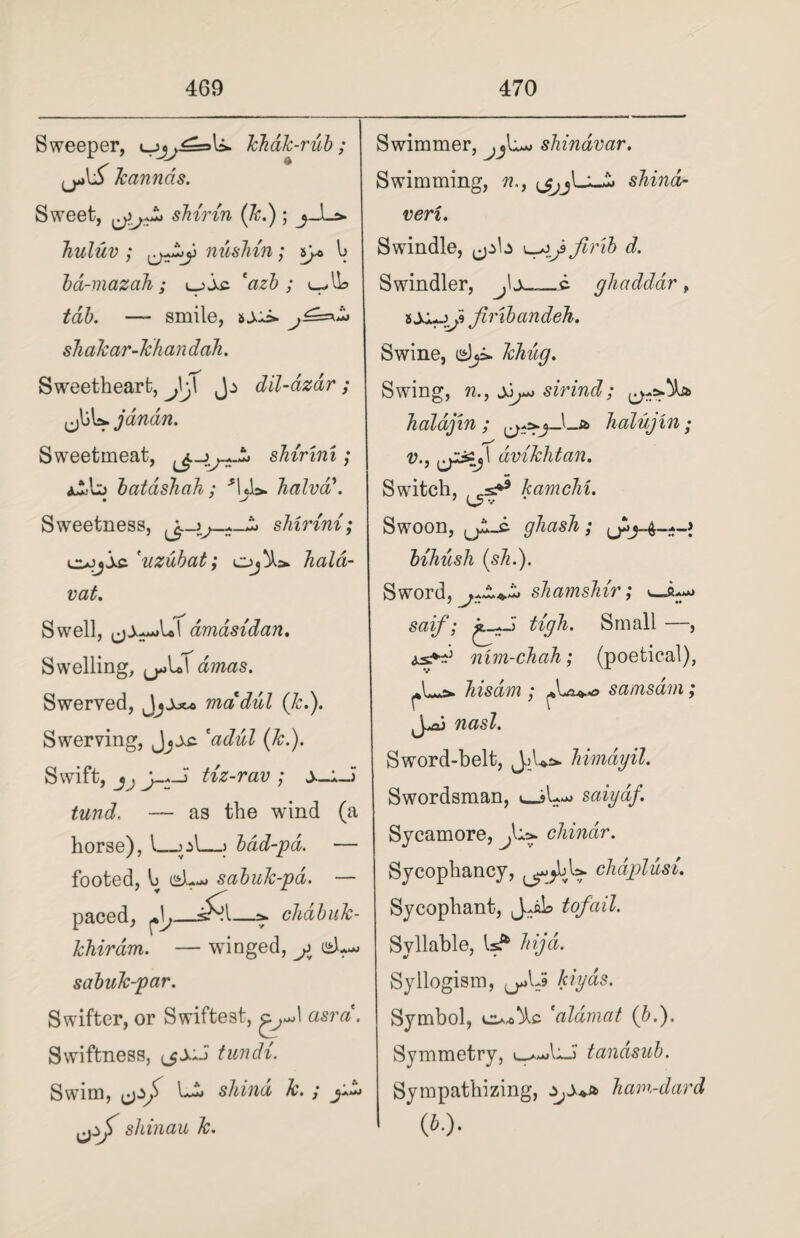 469
Sweeper, خاکروب khák-rúb ;
کناس kannás.
Sweet, شیرین shírín (k.) ; حلو
hulúv ; نوشین núshín ; با مزه
bá-mazah ; عذب 'azb ; طاب
táb. — smile, شکر خنده
shakar-khandah.
Sweetheart, دل آزار dil-ázár ;
جانان jánán.
Sweetmeat, شیرینی shíríní ;
بتاشه batáshah ; حلواء halvá'.
Sweetness, شیرینی shíríní ;
عذوبت 'uzúbat ; حلاوت halá-
vat.
Swell, آماسیدن ámásídan.
Swelling, آماس ámas.
Swerved, معدول ma'dúl (k.).
Swerving, عدول 'adúl (k.).
Swift, تیز رو tíz-rav ; تند
tund. — as the wind (a
horse), باد پا bád-pá. —
footed, سبک پا sabuk-pá. —
paced, چابک خرام chábuk-
khirám. — winged, سبک پر
sabuk-par.
Swifter, or Swiftest, اسرع asra'.
Swiftness, تندی tundí.
Swim, شنا کردن shiná k. ; شنو
کردن shinau k.
470
Swimmer, شناور shinávar.
Swimming, n., شناوری shiná-
verí.
Swindle, فریب دادن firíb d.
Swindler, غدار ghaddár ,
فریبنده firíbandeh.
Swine, خوک khúg.
Swing, n., سرند sirind ; هلاجین
halájín ; هلوجین halújín ;
v., آویختن ávíkhtan.
Switch, قمچی kamchí.
Swoon, غش ghash ; بیهوش
bíhúsh (sh.).
Sword, شمشیر shamshír ; سیف
saif ; تیغ tígh. Small —,
نیمچه ním-chah ; (poetical),
حسام hisám ; صمصام samsám ;
نصل nasl.
Sword-belt, حمایل himáyil.
Swordsman, سیاف saiyáf.
Sycamore, چنار chinár.
Sycophancy, چاپلوسی cháplúsí.
Sycophant, طفیل tofail.
Syllable, هجا hijá.
Syllogism, قیاس kiyás.
Symbol, علامت 'alámat (b.).
Symmetry, تناسب tanásub.
Sympathizing, همدرد ham-dard
(b.).